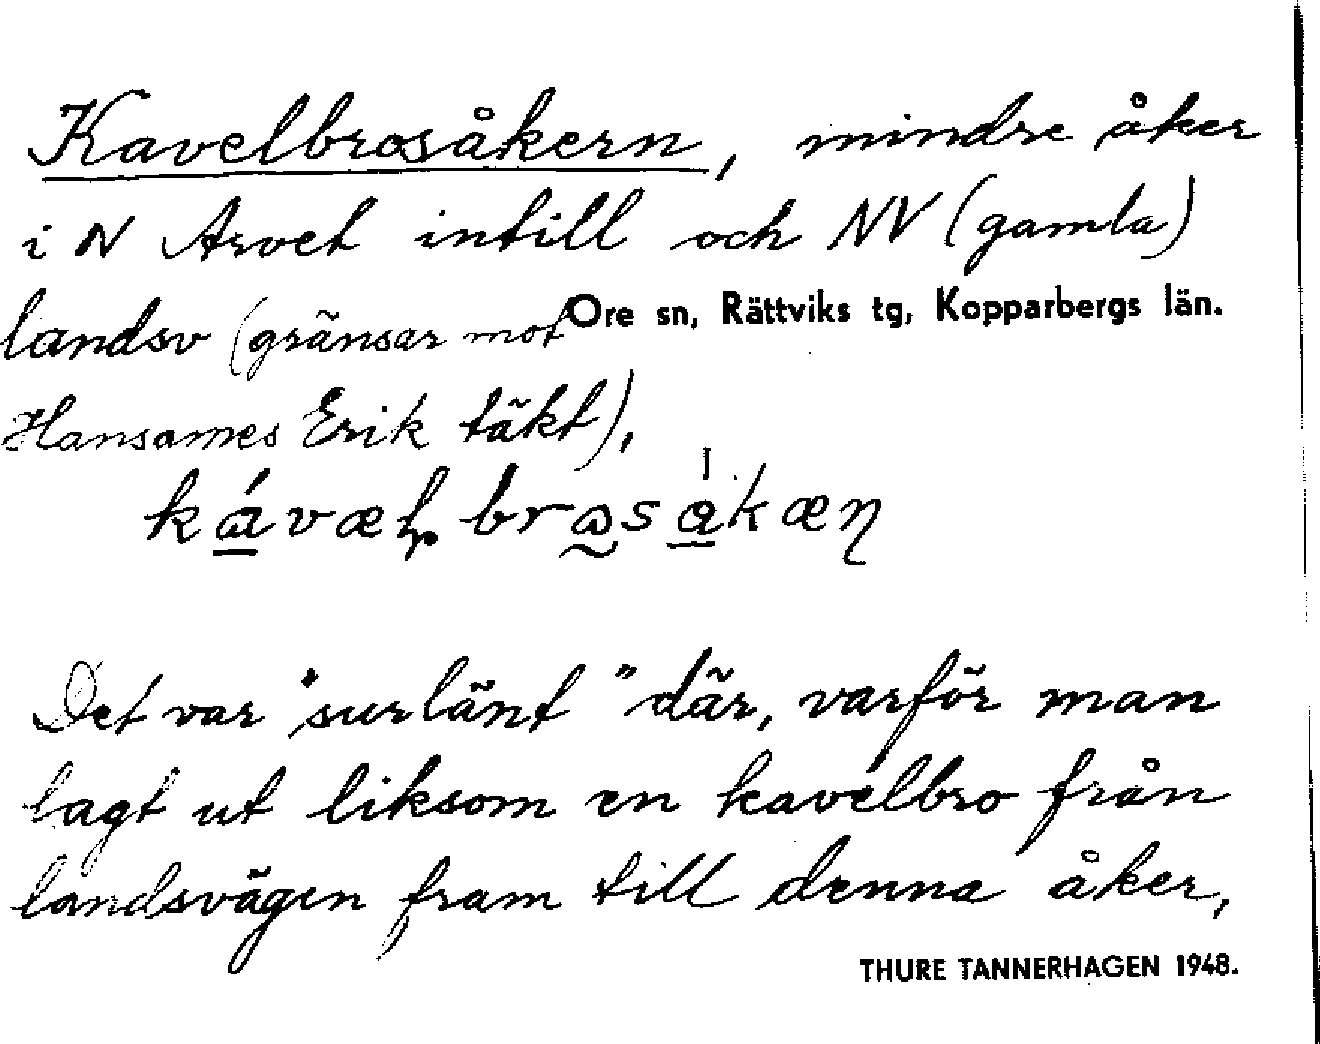 Kavelbrosåkern, mindre åker
i N Arvet intill och NV (gamla)
landsv (gränsar mot
Ore sn, Rättviks tg, Kopparbergs län.
Hansames Erik täkt),
Det var "surlänt" där, varför man
lagt ut liksom en kavelbro från
landsvägen fram till denna åker,
THURE TANNERHAGEN 1948.